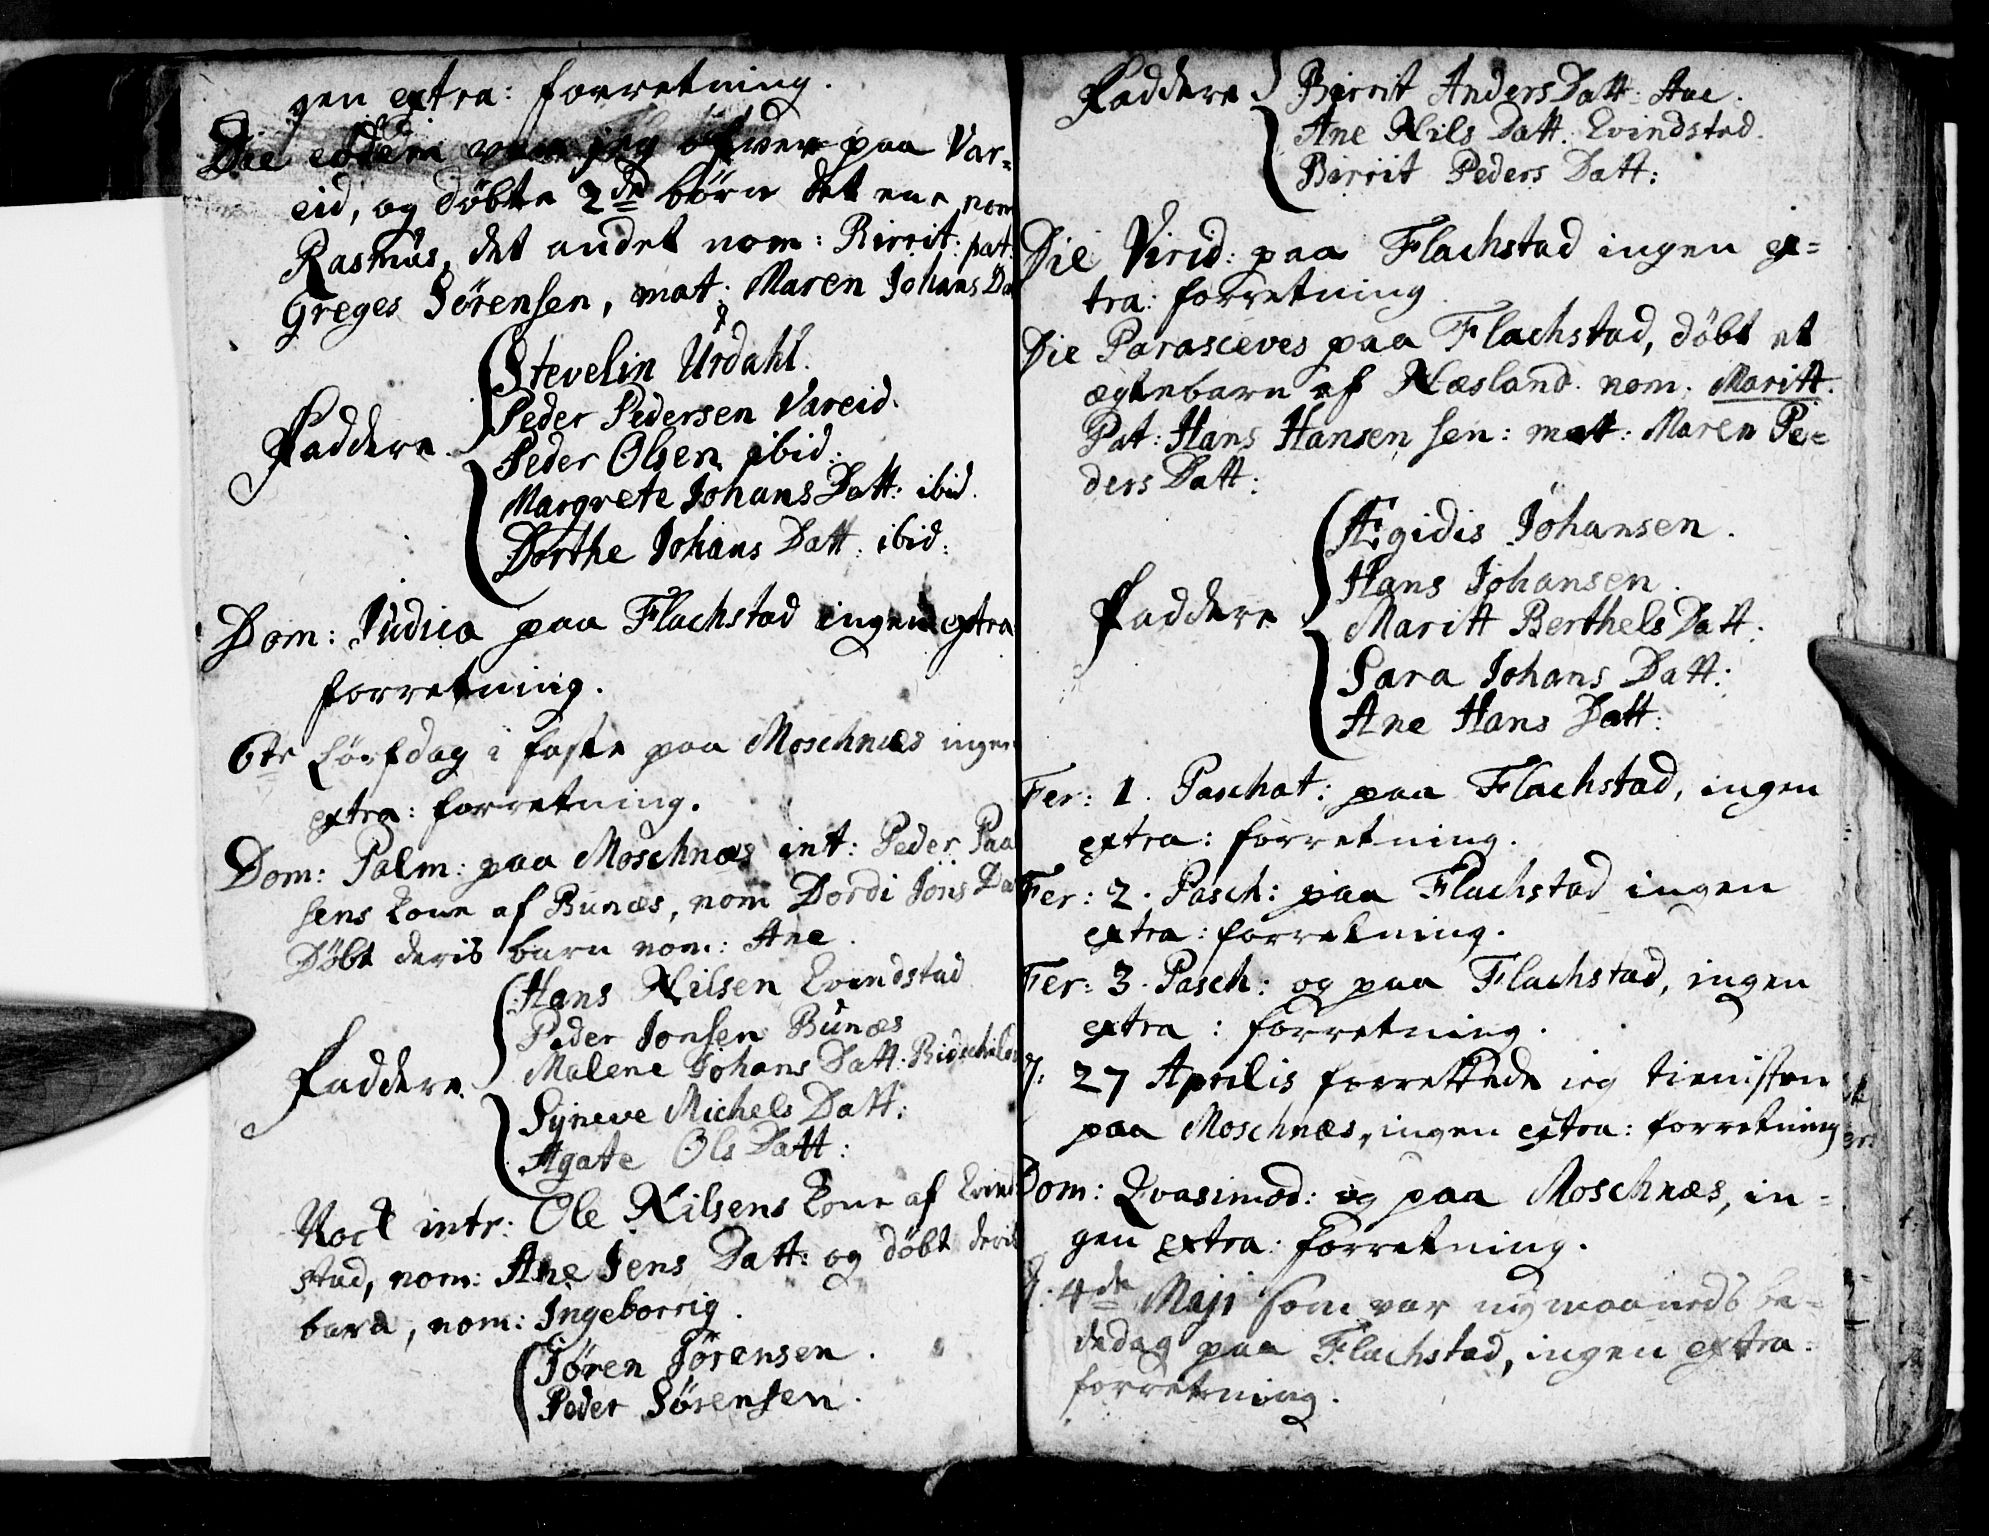 gen extra: forretning.
Die eodem var jeg öfver paa Var=
eid, og döbte 2de börn det ene nom
Rasmus, det andet nom: Birrit: pat:
Greges Sörensen, mat: Maren Johans Da
Stevelin Urdahl.
Peder Pedersen Vareid.
Faddere.
Peder Olsen ibid:
Margrete Johans Datt: ibid.
Dorthe Johans Datt: ibid:
Dom: Judica paa Flachstad ingen extra
forretning.
6te Löfsdag i faste paa Moschnæs ingen
extra: forretning.
Dom: Palm: paa Moschnæs int: Peder Paa
sens kone af Bunæs, nom Dordi Jons Da
Döbt deris barn nom: Ane.
Hans Nilsen Evindstad
Peder Jonsen Bunæs
Malene Johans Datt:
Faddere.
Syneve Michels Datt:
Agate Ols Datt:
Nock intr: Ole Nilsens kone af Evind
stad, nom: Ane Jens Datt: og döbt deris
barn, nom: Ingeborrig.
Sören Sörensen.
Peder Sörensen.
Faddere Birrit Anders Datt: Aae.
Ane Nils Datt: Evindstad.
Birrit Peders Datt:
Die Virid: paa Flachstad ingen ex=
tra: forretning.
Die Parasceves paa Flachstad, döbt et
ægtebarn af Næsland nom: Maritt.
Pat: Hans Hansen sen: matt: Maren Pe=
ders Datt:
Ægidis Johansen.
Hans Johansen.
Faddere
Maritt Berthels Datt:
Sara Johans Datt:
Ane Hans Datt:
Fer: 1. Paschat: paa Flachstad, ingen
extra: forretning.
Fer: 2. Pasch: paa Flachstad ingen
extra: forretning.
Fer: 3. Pasch: og paa Flachstad, ingen
extra: forretning.
d: 27 Aprilis forrettede ieg tienisten
paa Moschnæs, ingen extra: forretning
Dom: Qvasimod: og paa Moschnæs, in=
gen extra: forretning.
d: 4de Maji som var nÿmaaneds be=
dedag paa Flachstad, ingen extra:
forretning.